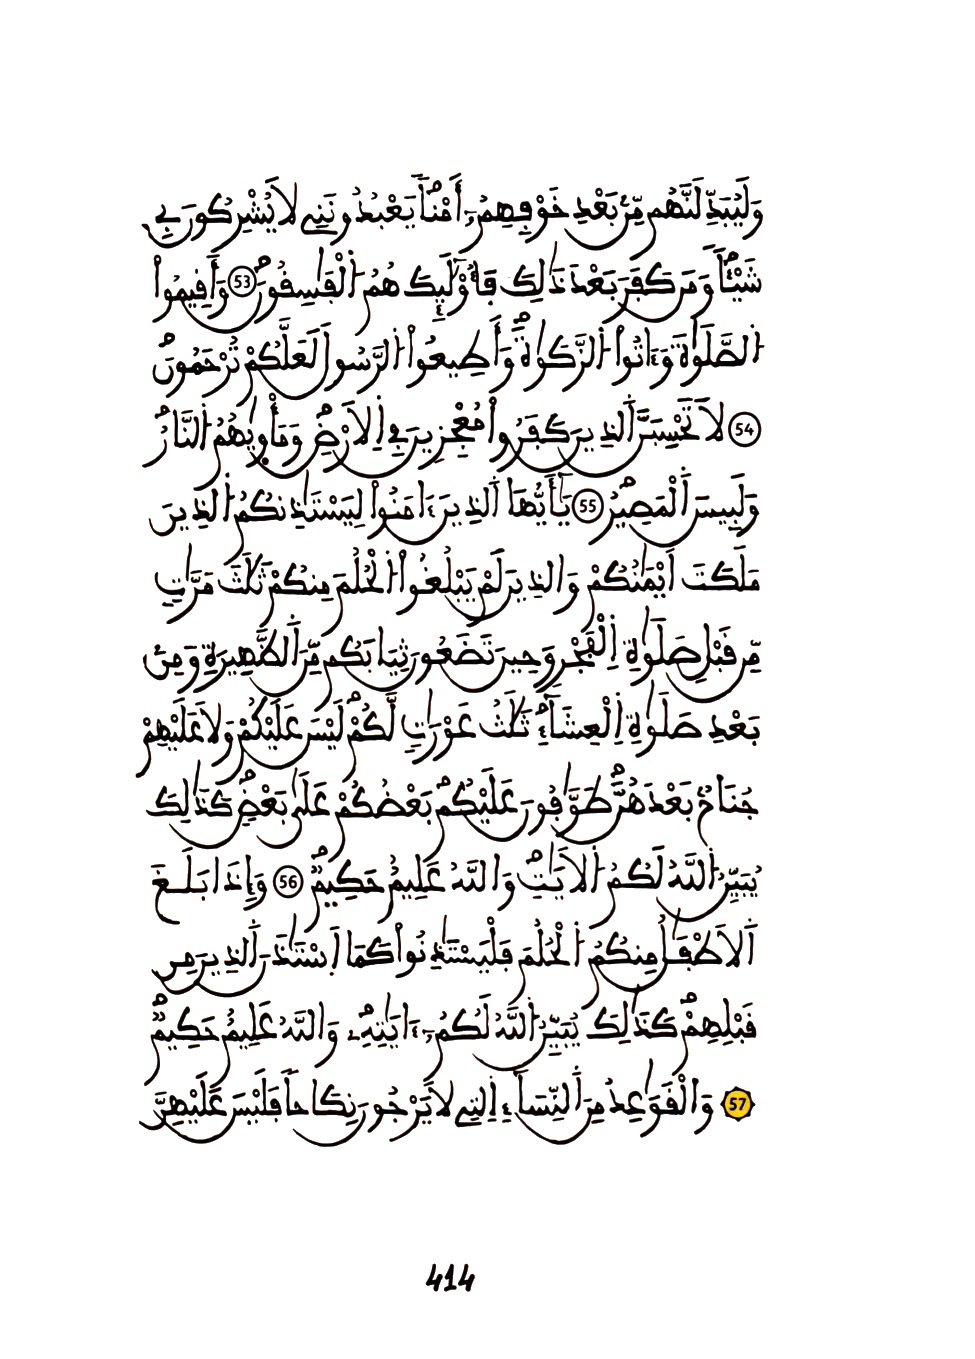 وَلَيُبَدِّلَنَّهُم مِّنۢ بَعْدِ خَوْفِهِمُۥٓ أَمْناٗ يَعْبُدُونَنِے لَا يُشْرِكُونَ بِے
شَيْـٔاٗ وَمَن كَفَرَ بَعْدَ ذَٰلِكَ فَأُوْلَٰٓئِكَ هُمُ اُ۬لْفَٰسِقُونَ 53 وَأَقِيمُواْ
اُ۬لصَّلَوٰةَ وَءَاتُواْ اُ۬لزَّكَوٰةَ وَأَطِيعُواْ اُ۬لرَّسُولَ لَعَلَّكُمْ تُرْحَمُونَ
54 لَا تَحْسِبَنَّ اَ۬لذِينَ كَفَرُواْ مُعْجِزِينَ فِے اِ۬لَارْضِ وَمَأْوٜيٰهُمُ اُ۬لنَّارُ
وَلَبِيسَ اَ۬لْمَصِيرُ 55 يَٰٓأَيُّهَا اَ۬لذِينَ ءَامَنُواْ لِيَسْتَٰذِنكُمُ اُ۬لذِينَ
مَلَكَتَ اَيْمَٰنُكُمْ وَالذِينَ لَمْ يَبْلُغُواْ اُ۬لْحُلُمَ مِنكُمْ ثَلَٰثَ مَرَّٰتٖ
مِّن قَبْلِ صَلَوٰةِ اِ۬لْفَجْرِ وَحِينَ تَضَعُونَ ثِيَابَكُم مِّنَ اَ۬لظَّهِيرَةِ وَمِنۢ
بَعْدِ صَلَوٰةِ اِ۬لْعِشَآءِ ثَلَٰثُ عَوْرَٰتٖ لَّكُمْ لَيْسَ عَلَيْكُمْ وَلَا عَلَيْهِمْ
جُنَاحُۢ بَعْدَهُنَّ طَوَّٰفُونَ عَلَيْكُم بَعْضُكُمْ عَلَىٰ بَعْضٖ كَذَٰلِكَ
يُبَيِّنُ اُ۬للَّهُ لَكُمُ اُ۬لَايَٰتِ وَاللَّهُ عَلِيمٌ حَكِيمٞ 56 وَإِذَا بَلَغَ
اَ۬لَاطْفَٰلُ مِنكُمُ اُ۬لْحُلُمَ فَلْيَسْتَٰذِنُواْ كَمَا اَ۪سْتَٰذَنَ اَ۬لذِينَ مِن
قَبْلِهِمْ كَذَٰلِكَ يُبَيِّنُ اُ۬للَّهُ لَكُمُۥٓ ءَايَٰتِهِۦ وَاللَّهُ عَلِيمٌ حَكِيمٞ
57 وَالْقَوَٰعِدُ مِنَ اَ۬لنِّسَآءِ اِ۬لتِے لَا يَرْجُونَ نِكَاحاٗ فَلَيْسَ عَلَيْهِنَّ
414